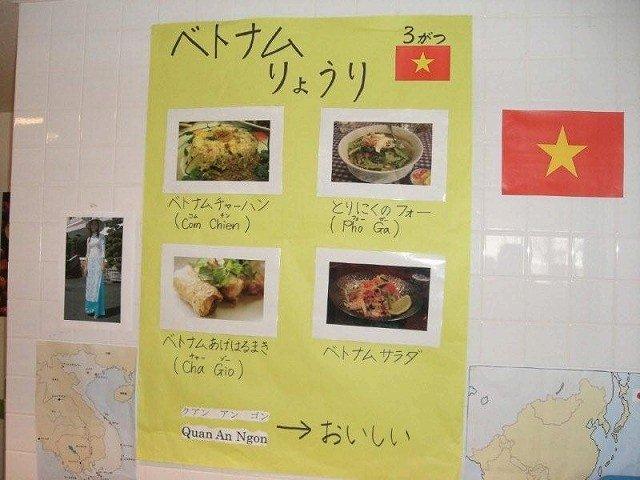 ベトナム
りょうり
3がつ
ベトナムチャーハン
コム チン
(Com Chien)
とりにくのフォー
フォー ガー
(Pho Ga)
ベトナムあげはるまき
チャー ゾー
(Cha Gio)
ベトナムサラダ
クアン アン ゴン
Quan An Ngon → おいしい